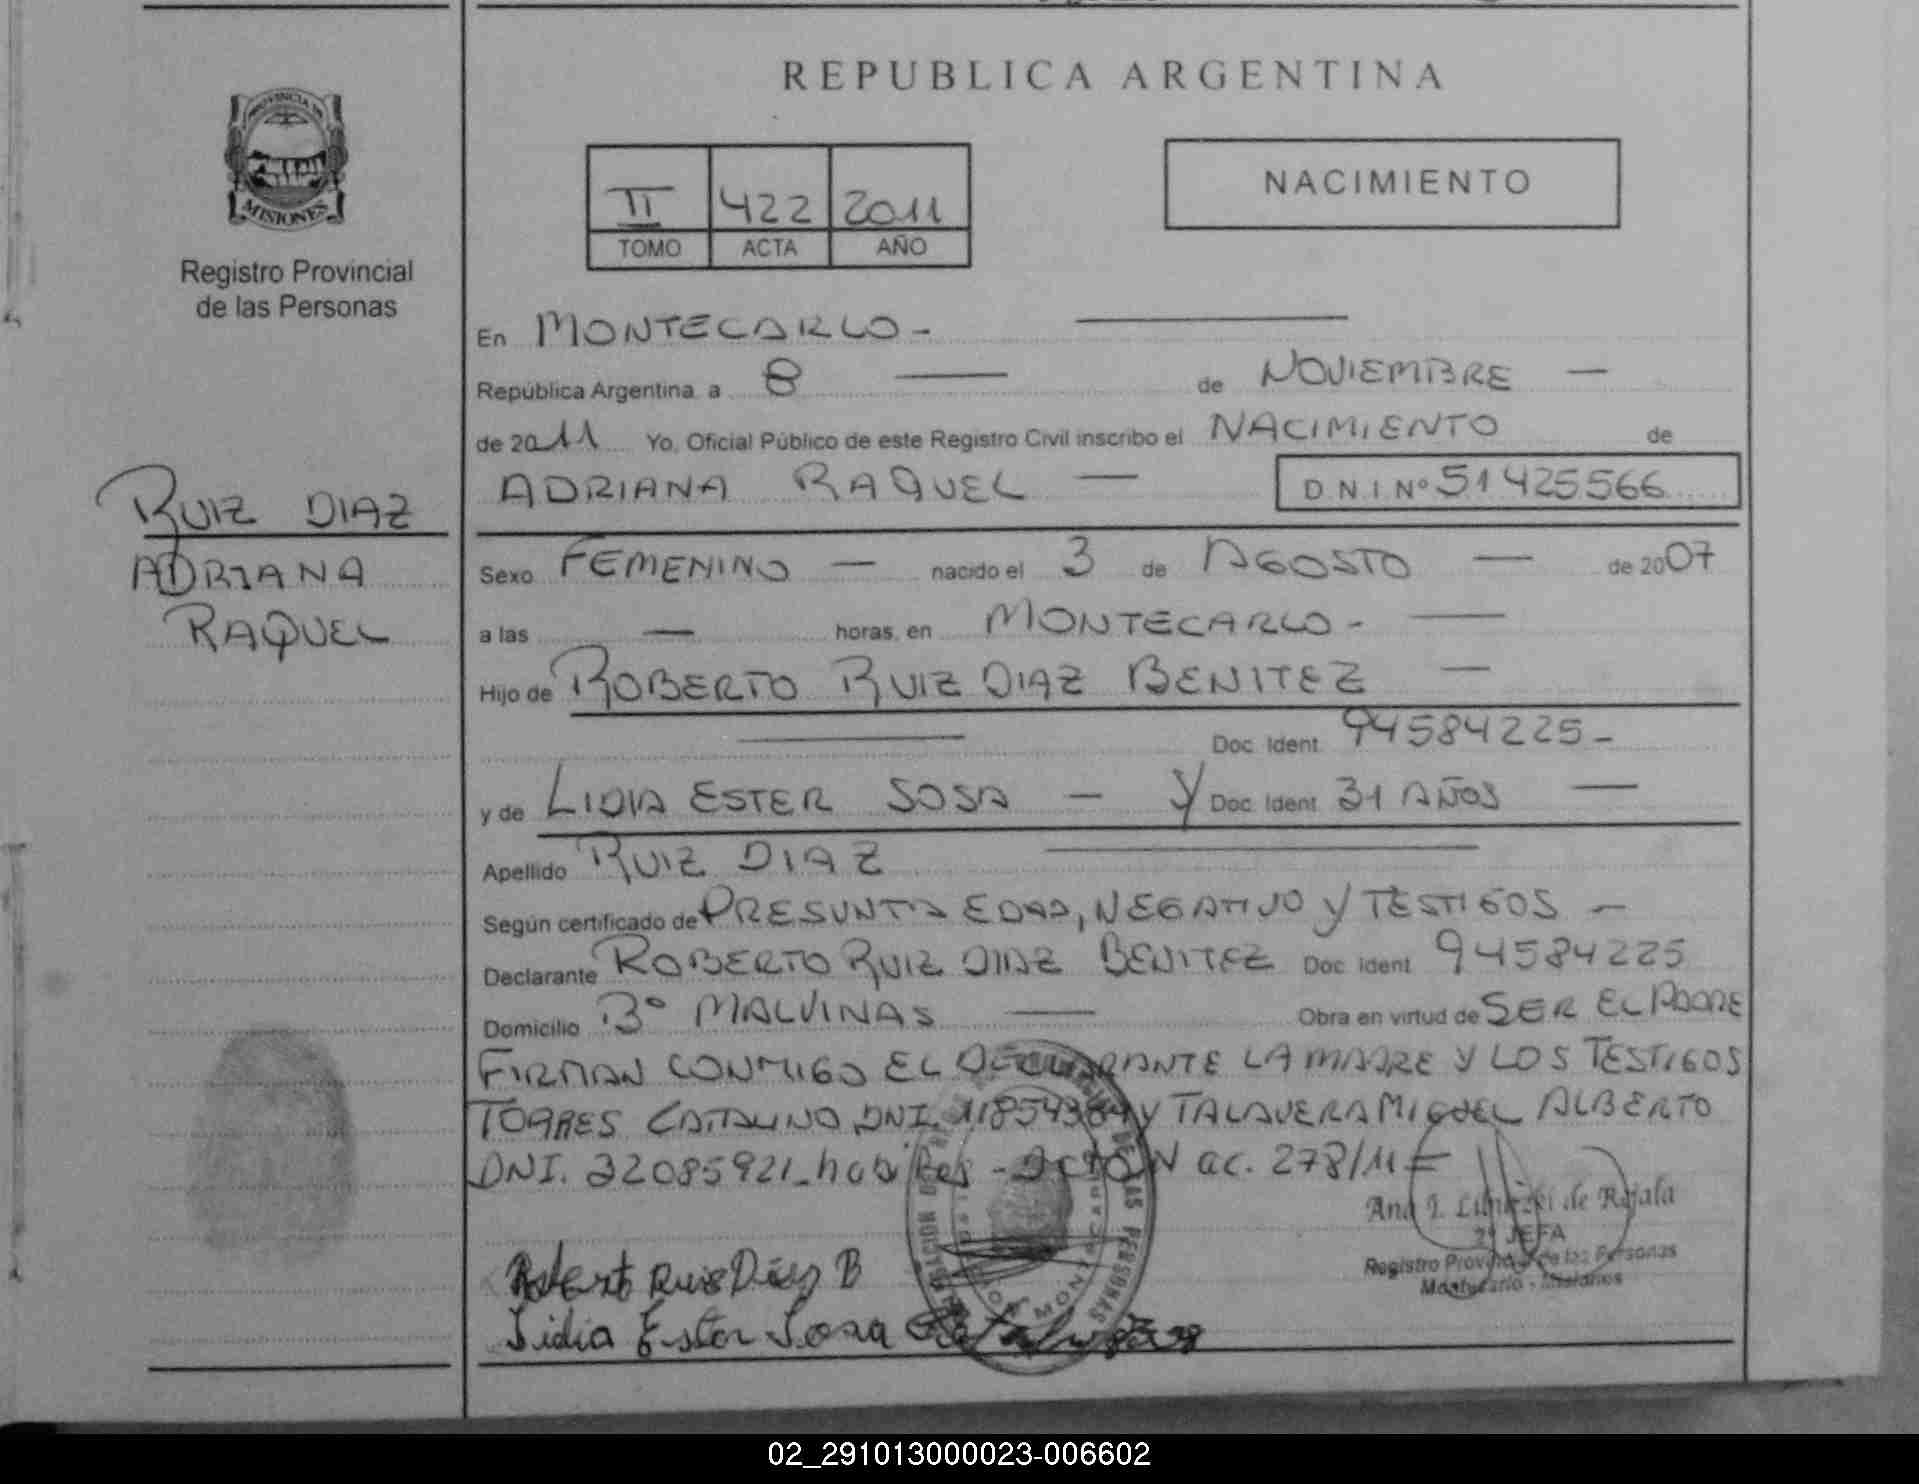 REPUBLICA ARGENTINA
PROVINCIA DE
MISIONES
Registro Provincial
de las Personas
II 422 2011
TOMO ACTA AÑO
NACIMIENTO
En MONTECARLO -
República Argentina a 8 — de NOVIEMBRE —
de 2011 Yo, Oficial Público de este Registro Civil inscribo el NACIMIENTO de
ADRIANA RAQUEL — D.N.I Nº 51425566
RUIZ DIAZ
ADRIANA
RAQUEL
Sexo FEMENINO — nacido el 3 de AGOSTO — de 2007
a las — horas, en MONTECARLO - —
Hijo de ROBERTO RUIZ DIAZ BENITEZ —
Doc. Ident. 94584225 -
y de LIDIA ESTER SOSA — y Doc. Ident. 31 AÑOS —
Apellido RUIZ DIAZ
Según certificado de PRESUNTA EDAD, NEGATIVO Y TESTIGOS —
Declarante ROBERTO RUIZ DIAZ BENITEZ Doc. Ident. 94584225
Domicilio Bº MALVINAS — Obra en virtud de SER EL PADRE
FIRMAN CONMIGO EL DECLARANTE LA MADRE Y LOS TESTIGOS
TORRES CATALINO DNI. 11854384 Y TALAVERA MIGUEL ALBERTO
DNI. 22085921 - habiles - Acta Nac. 278/11 =
Ana I. de Rajala
2º JEFA
Registro Provincial de las Personas
Montecarlo - Misiones
Roberto Ruis Díaz B
Lidia Ester Sosa
DE LAS PERSONAS
02_291013000023-006602